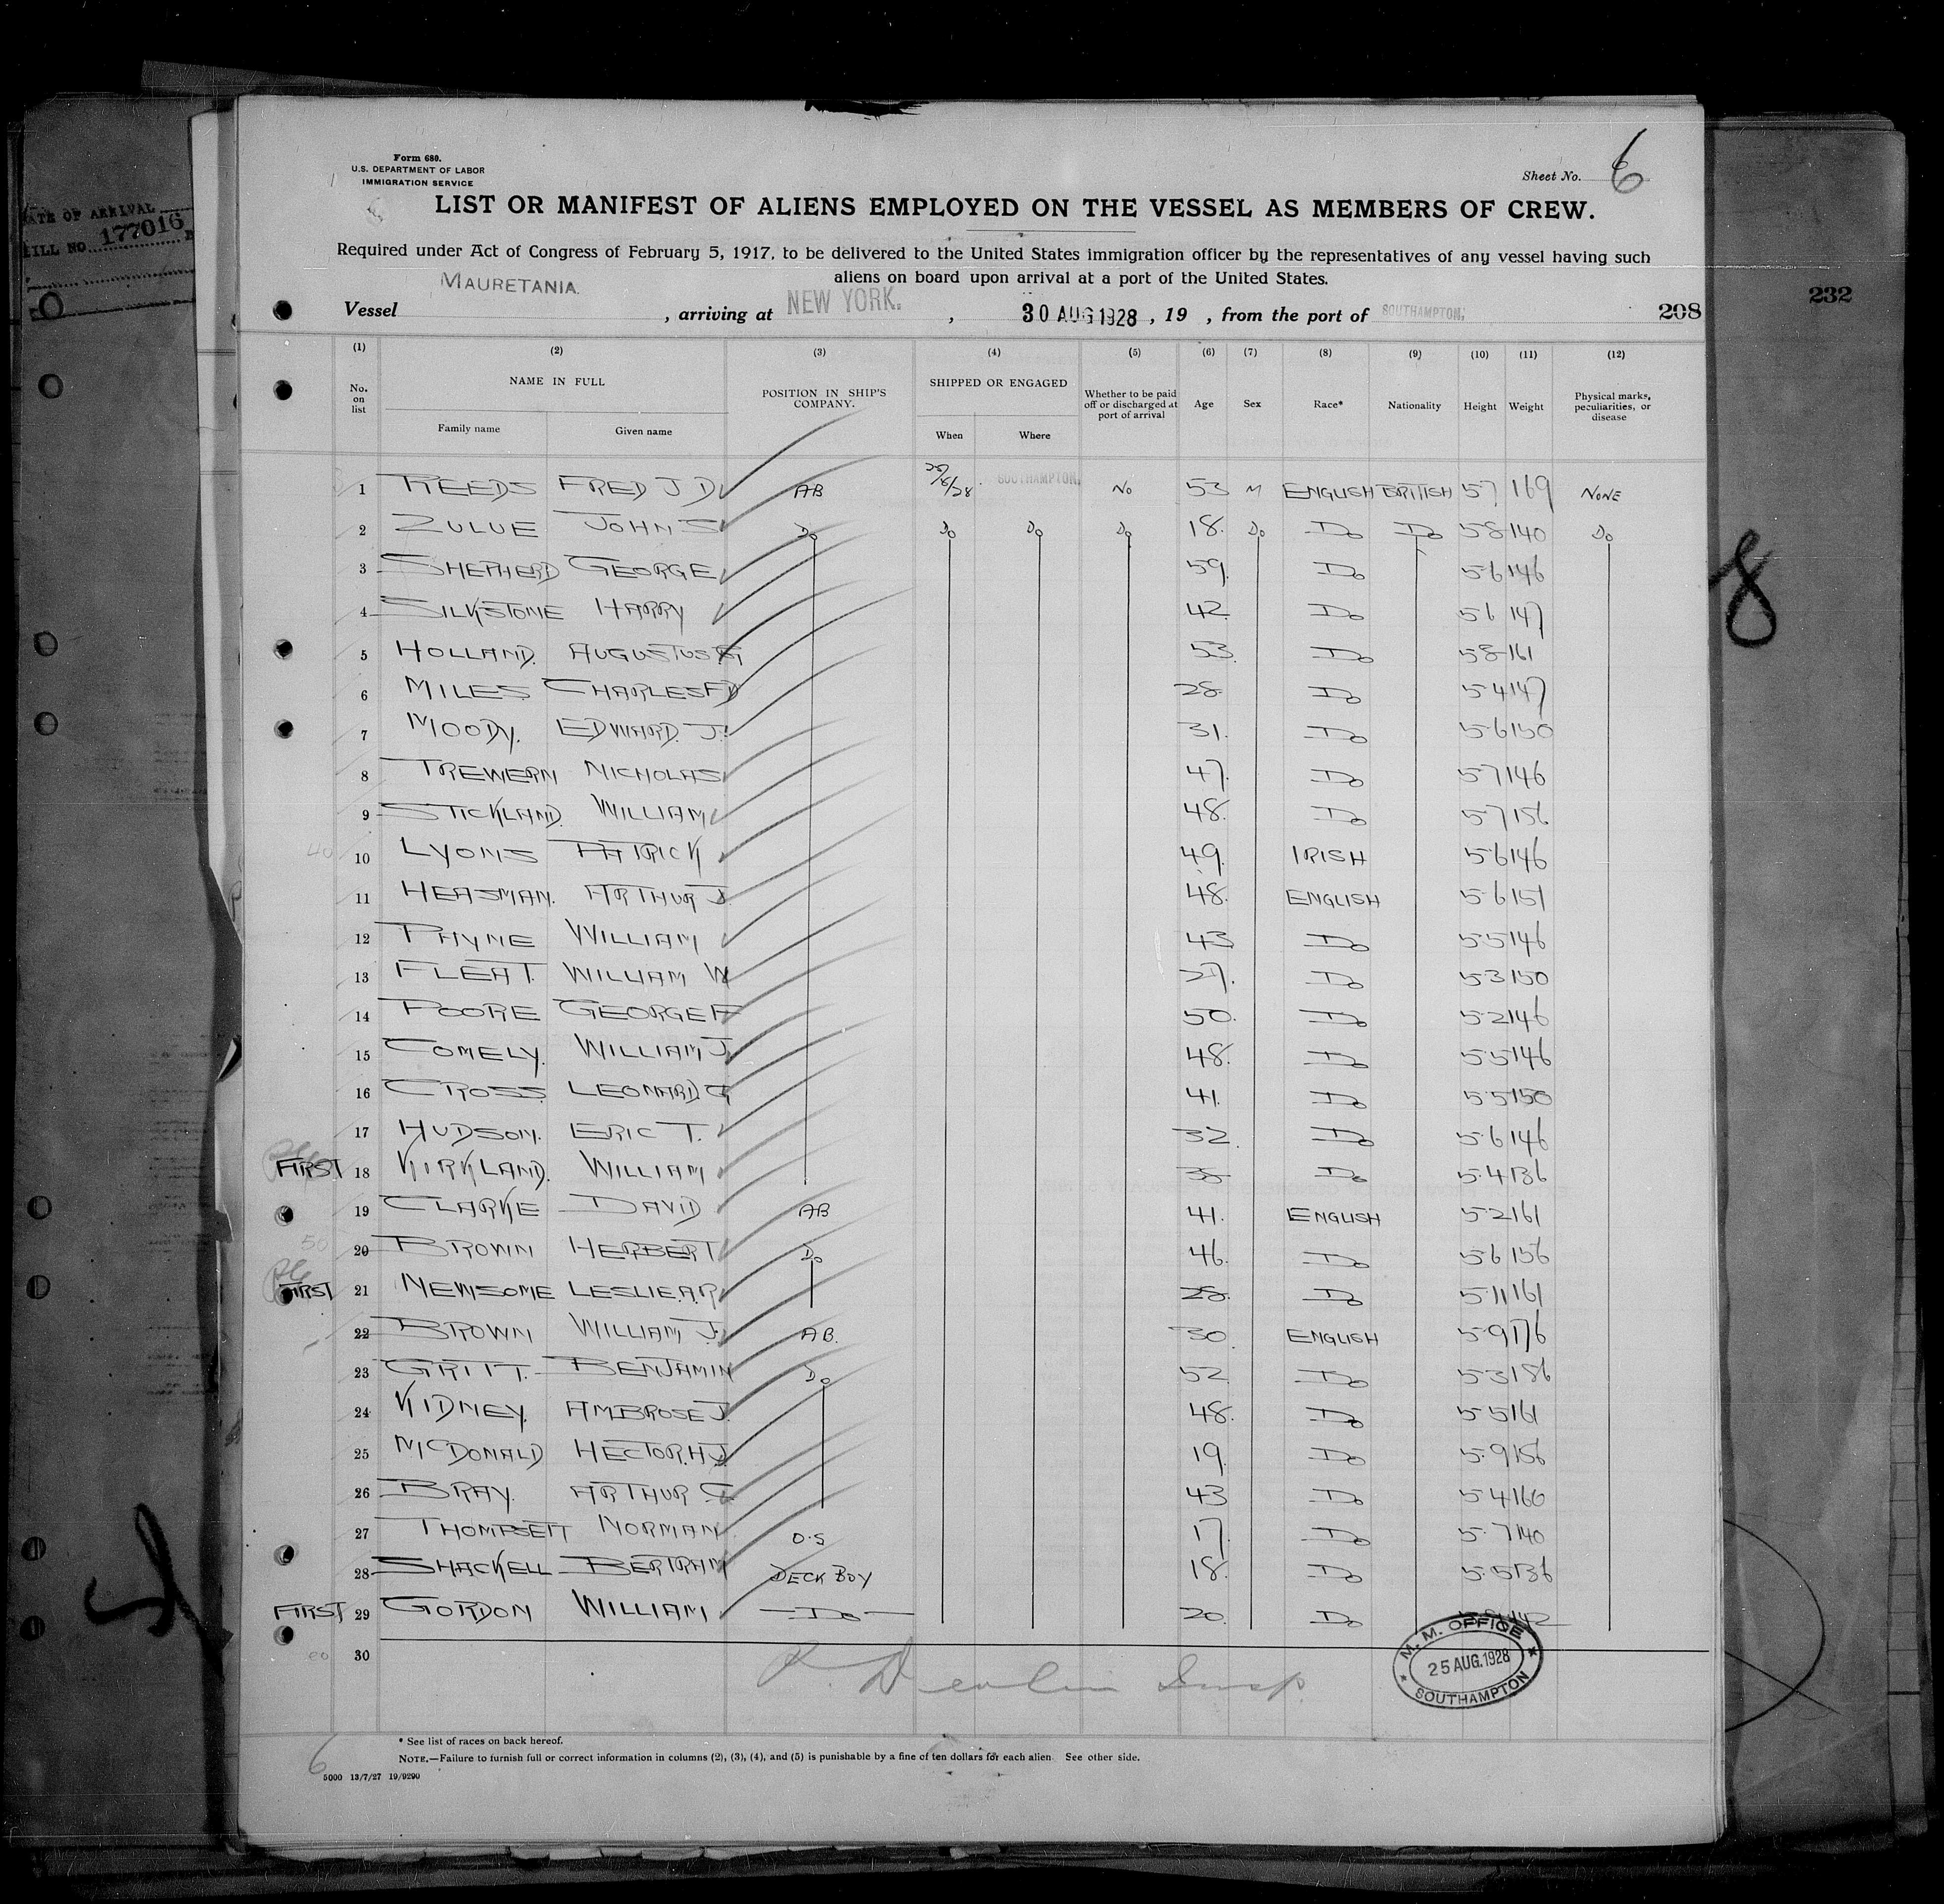 DATE OF ARRIVAL
177016
Form 680.
U.S. DEPARTMENT OF LABOR
IMMIGRATION SERVICE
Sheet No. 6
LIST OR MANIFEST OF ALIENS EMPLOYED ON THE VESSEL AS MEMBERS OF CREW.
Required under Act of Congress of February 5, 1917, to be delivered to the United States immigration officer by the representatives of any vessel having such
aliens on board upon arrival at a port of the United States.
Vessel MAURETANIA, arriving at NEW YORK., 30 AUG 1928, 19 , from the port of SOUTHAMPTON, 208
232
(1) (2) (3) (4) (5) (6) (7) (8) (9) (10) (11) (12)
No. on list NAME IN FULL POSITION IN SHIP'S COMPANY. SHIPPED OR ENGAGED Whether to be paid off or discharged at port of arrival Age Sex Race* Nationality Height Weight Physical marks, peculiarities, or disease
Family name Given name When Where
1 REEDS FRED J D AB SOUTHAMPTON, No 53 M ENGLISH BRITISH 57 169 NONE
2 ZULUE JOHN S Do Do Do Do 18. Do Do Do 58 140 Do
3 SHEPHERD GEORGE 59. Do 56 146
4 SILKSTONE HARRY 42 Do 56 147
5 HOLLAND. AUGUSTUS G 53. Do 58 161
6 MILES CHARLES F D 28 Do 54 147
7 MOODY. EDWARD. J. 31. Do 56 150
8 TREWERN NICHOLAS 47. Do 57 146
9 STICKLAND. WILLIAM 48. Do 57 156
10 LYONS PATRICK 49. IRISH 56 146
11 HEASMAN. ARTHUR J. 48. ENGLISH 56 151
12 PAYNE WILLIAM 43 Do 55 146
13 FLEAT. WILLIAM W 27. Do 53 150
14 POORE GEORGE F 50. Do 52 146
15 COMELY. WILLIAM J 48. Do 55 146
16 CROSS. LEONARD G 41. Do 55 150
17 HUDSON. ERIC T. 32. Do 56 146
FIRST 18 KIRKLAND. WILLIAM 38 Do 54 136
19 CLARKE DAVID AB 41. ENGLISH 52 161
20 BROWN HERBERT Do 46. Do 56 156
FIRST 21 NEWSOME LESLIE.A.R. 28. Do 5 11 161
22 BROWN WILLIAM J. AB. 30. ENGLISH 59 176
23 GRITT. BENJAMIN Do 52. Do 53 186
24 KIDNEY. AMBROSE J. 48. Do 55 161
25 McDONALD HECTOR.H.J. 19. Do 5.9 156
26 BRAY. ARTHUR 43 Do 54 160
27 THOMPSETT NORMAN. O.S 17. Do 5.7 140
28 SHACKELL BERTRAM DECK BOY 18. Do 5.5 136
FIRST 29 GORDON WILLIAM Do 20. Do 142
30
Devlin Insp.
M. M. OFFICE
25 AUG. 1928
SOUTHAMPTON
* See list of races on back hereof.
NOTE.—Failure to furnish full or correct information in columns (2), (3), (4), and (5) is punishable by a fine of ten dollars for each alien. See other side.
6
5000 13/7/27 19/9290
8